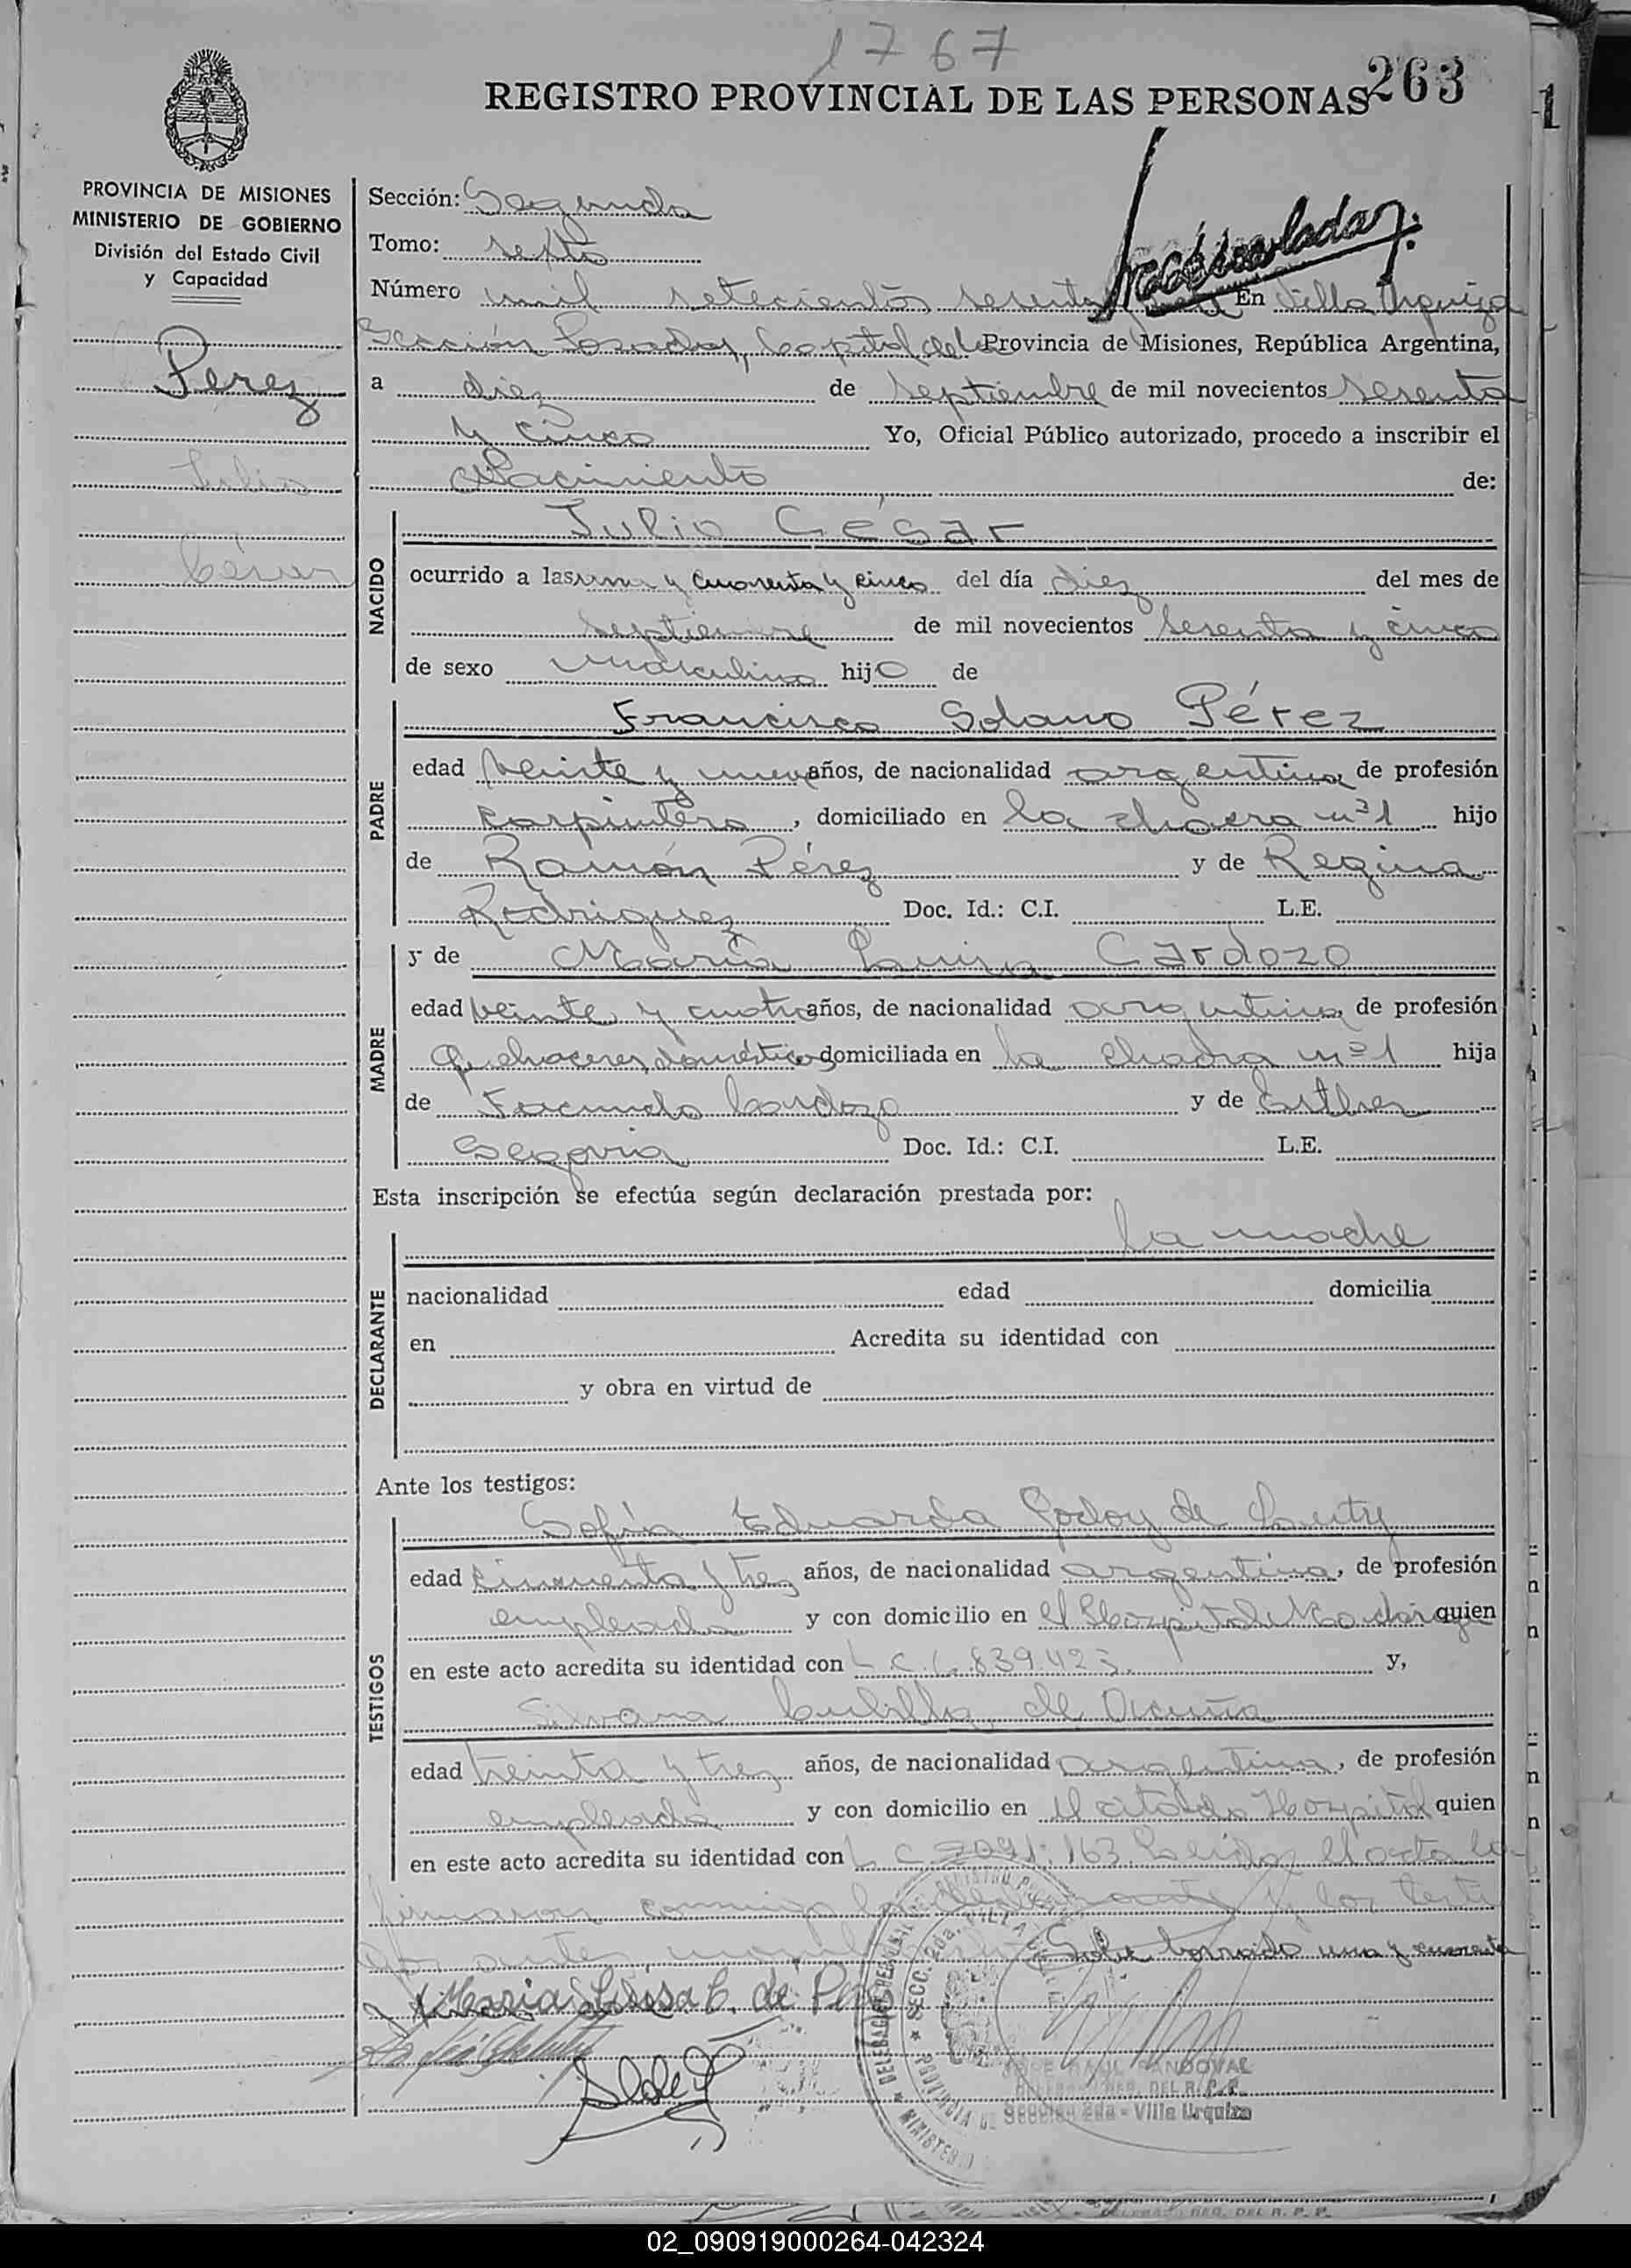 1767
REGISTRO PROVINCIAL DE LAS PERSONAS 263
PROVINCIA DE MISIONES
MINISTERIO DE GOBIERNO
División del Estado Civil
y Capacidad
Perez
Julio
César
Sección: Segunda
Tomo: sexto
Número mil setecientos sesenta En Villa Urquiza
Sección Posadas, Capital de la Provincia de Misiones, República Argentina,
a diez de Septiembre de mil novecientos sesenta
y cinco Yo, Oficial Público autorizado, procedo a inscribir el
Nacimiento de:
NACIDO
Julio César
ocurrido a las una y cuarenta y cinco del día diez del mes de
Septiembre de mil novecientos sesenta y cinco
de sexo masculino hijo de
PADRE
Francisco Solano Pérez
edad veinte y nueve años, de nacionalidad argentina de profesión
carpintero, domiciliado en la chacra nº 1 hijo
de Ramón Pérez y de Regina
Rodriguez Doc. Id.: C.I. L.E.
MADRE
y de María Luisa Cardozo
edad veinte y cuatro años, de nacionalidad argentina de profesión
Quehaceres domésticos domiciliada en la chacra nº 1 hija
de Facundo Cardozo y de Esther
Segovia Doc. Id.: C.I. L.E.
Esta inscripción se efectúa según declaración prestada por:
DECLARANTE
la madre
nacionalidad edad domicilia
en Acredita su identidad con
y obra en virtud de
Ante los testigos:
TESTIGOS
Sofía Eduarda Godoy de
edad cincuenta y tres años, de nacionalidad argentina, de profesión
empleada y con domicilio en el Hospital Madariaga quien
en este acto acredita su identidad con L.C. 839.423. y,
Silvana de Acuña
edad treinta y tres años, de nacionalidad argentina, de profesión
empleada y con domicilio en el citado Hospital quien
en este acto acredita su identidad con L C 163. Leída el acta la
firmaron conmigo la declarante y los testi
gos antes Sobre borrado una y cuarenta
Maria Luisa C. de
SECC. 2da. VILLA
PROVINCIA DE
SANDOVAL
DEL R. P. P.
Sección 2da - Villa Urquiza
DEL R. P. P.
02_090919000264-042324